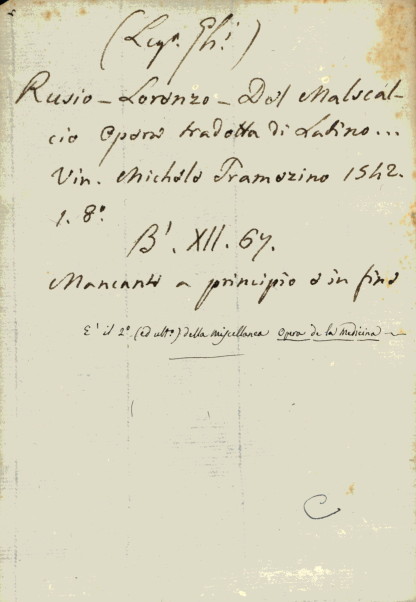 (Leg.ª Gh.ⁱ)
Rusio - Lorenzo - Del Malscal-
cio Opera tradotta di Latino...
Vin. Michele Tramezino 1542.
1. 8.º
B'. XII. 67.
Mancante a principio e in fine
E' il 2.º (ed ult.º) della miscellanea Opera de la Medicina
C